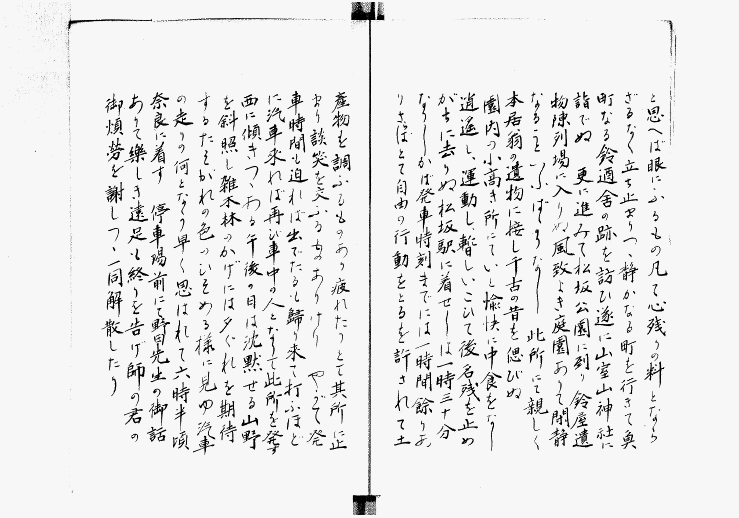 と思へば眼にふるもの凡て心残りの料となら
ざるなく立ち止まりつゝ静かなる町を行きて奥
町なる鈴廼舎の跡を訪ひ遂に山室山神社に
詣でぬ 更に進みて松坂公園に到り鈴屋遺
物陳列場に入りぬ風致よき庭園ありて閑静
なること いふばかりなし 此所にて親しく
本居翁の遺物に接し千古の昔を偲びぬ
園内の小高き所にていと愉快に中食をなし
逍遥し、運動し、暫しいこひて後名残を止め
がちに去りぬ松坂駅に着せしは一時三十分
なりしかば発車時刻までには一時間餘りあ
りさればとて自由の行動をとるを許されて土
産物を調ふるものあり疲れたりとて其所に正
まり談笑を交ふるものありけり やがて発
車時間も迫れば出でたるも歸り来て打ふほど
に汽車来れば再び車中の人となりて此所を発す
西に傾きつゝある午後の日は沈黙せる山野
を斜照し雑木林のかげには夕ぐれを期待
するたそがれの色のひそめる様に見ゆ汽車
の走りの何となう早く思はれて六時半頃
奈良に着す 停車場前にて野田先生の御話
ありて樂しき遠足も終りを告げ師の君の
御煩勞を謝しつゝ一同解散したり